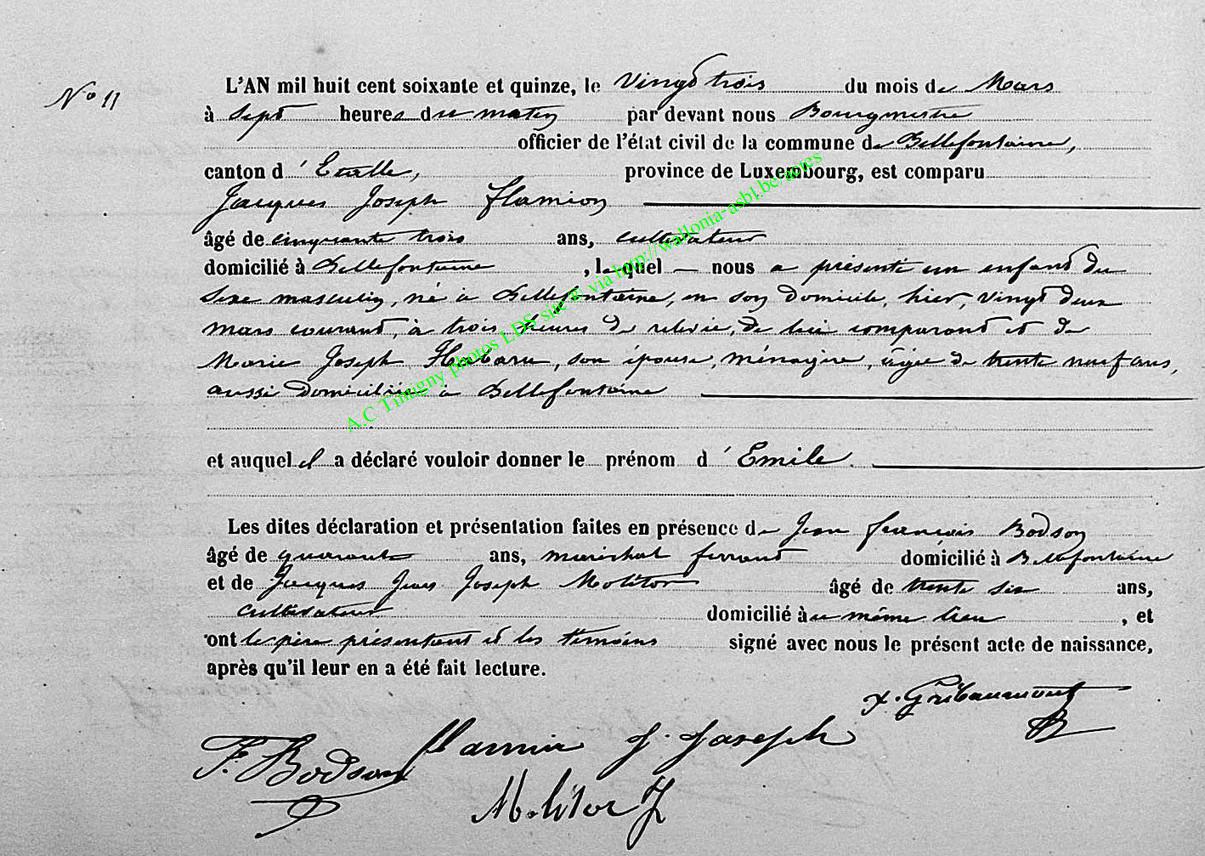 N° 11
L'AN mil huit cent soixante et quinze, le Vingt trois du mois de Mars
à Sept heures du matin par devant nous Bourgmestre
officier de l'état civil de la commune de Bellefontaine,
canton d'Etalle, province de Luxembourg, est comparu
Jacques Joseph Flamion
âgé de cinquante trois ans, cultivateur
domicilié à Bellefontaine, lequel — nous a présenté un enfant du
Sexe masculin, né à Bellefontaine, en son domicile, hier, vingt deux
mars courant, à trois heures de relevée, de lui comparant et de
Marie Joseph Habaru, son épouse, ménagère, âgée de trente neuf ans,
aussi domiciliée à Bellefontaine
et auquel il a déclaré vouloir donner le prénom d'Emile.
Les dites déclaration et présentation faites en présence de Jean françois Bodson
âgé de quarante ans, maréchal ferrant domicilié à Bellefontaine
et de Jacques Jean Joseph Molitor âgé de trente six ans,
cultivateur domicilié au même lieu, et
ont le père présentant et les témoins signé avec nous le présent acte de naissance,
après qu'il leur en a été fait lecture.
Gribaumont
F. Bodson flamion J. Joseph
Molitor J
A.C Tintigny photos LDS site via http://wallonia-asbl.be/actes